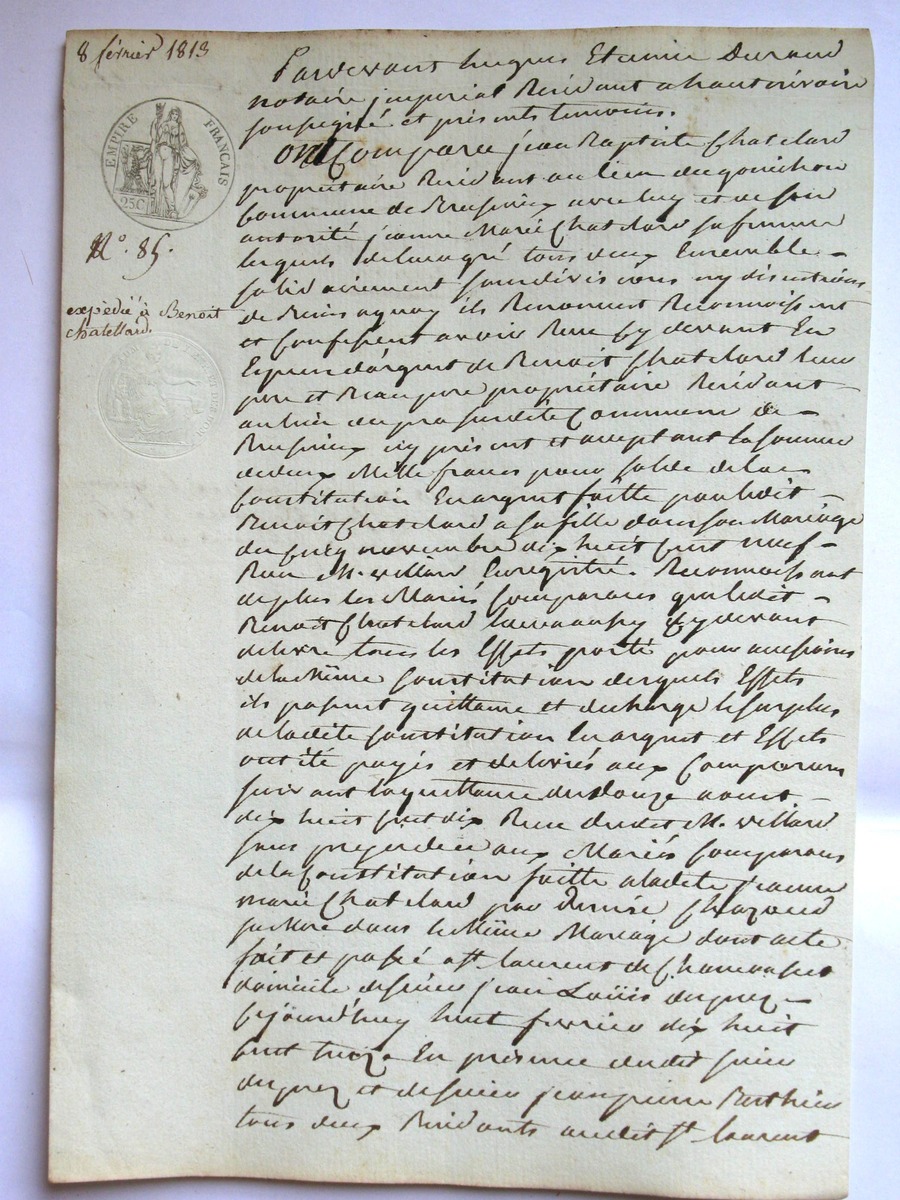 8 février 1813
EMPIRE FRANÇAIS
25C
N.º 85.
expédié à Benoit
chatellard.
Pardevant hugues Etienne Durand
notaire jmperial Residant a hauterivoire
soussigné et présents temoins.
Ont Comparu jean Baptiste Chatelard
proprietaire Residant au lieu du gonichon
Commune de Brussieux avec luy et de son
autorité jeanne Marie Chatelard sa femme
lesquels de leur gré tous deux Ensemble
solidairement sans division ny discutions
de biens aquoy ils Renoncent Reconnoissent
et Confessent avoir Reçu cy devant En
Especes d'argent de Benoit Chatelard leur
pere et Beaupere propriétaire Residant
au lieu du pra susdite Commune de
Brussieux icy présent et acceptant la somme
de deux Mille francs pour solde de la
Constitution En argent faitte par ledit
Benoit Chatelard a sa fille dans son Mariage
du cinq novembre dix huit cent neuf
Reçu M. villard Enregistré. Reconnoissant
de plus les Mariés Comparans que ledit
Benoit Chatelard leur a aussy Cy devant
delivré tous les Effets porté pour
de la Même Constitution desquels Effets
ils passent quittance et decharge le surplus
de ladite Constitution En argent et Effets
ont été payés et delivrés aux Comparans
suivant la quittance du douze aoust
dix huit cent dix Reçue dudit M. villard
sans prejudice aux Mariés Comparans
de la Constitution faitte a ladite jeanne
marie Chatelard par Denise Chazaud
sa Mere dans le Même Mariage dont acte
fait et passé a St. laurent de Chamousset
domicile de sieur jean Louis dupuez
cejourd'huy huit fevrier dix huit
cent treize En présence dudit sieur
dupuez et de sieur jean pierre Barthieu
tous deux Residants audit St. laurent